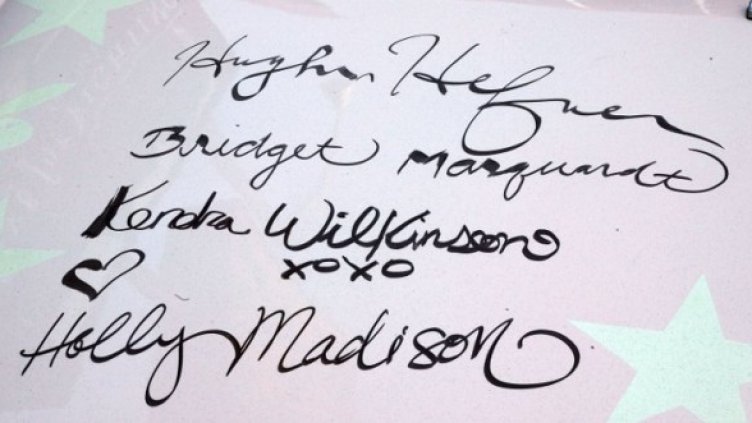 Hugh M. Hefner
Bridget Marquardt
Kendra Wilkinson
xoxo
Holly Madison